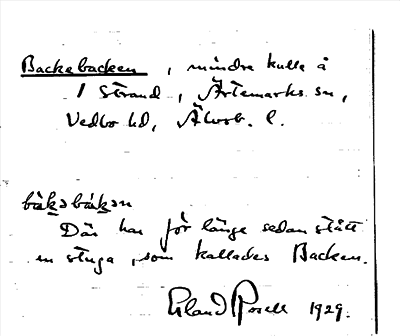 Backebacken, mindre kulle å
1 Strand, Ärtemarks sn,
Vedbo hd, Älvsb. l.
bàkəbákən
Där har för länge sedan stått
en stuga, som kallades Backen.
Erland Rosell 1929.